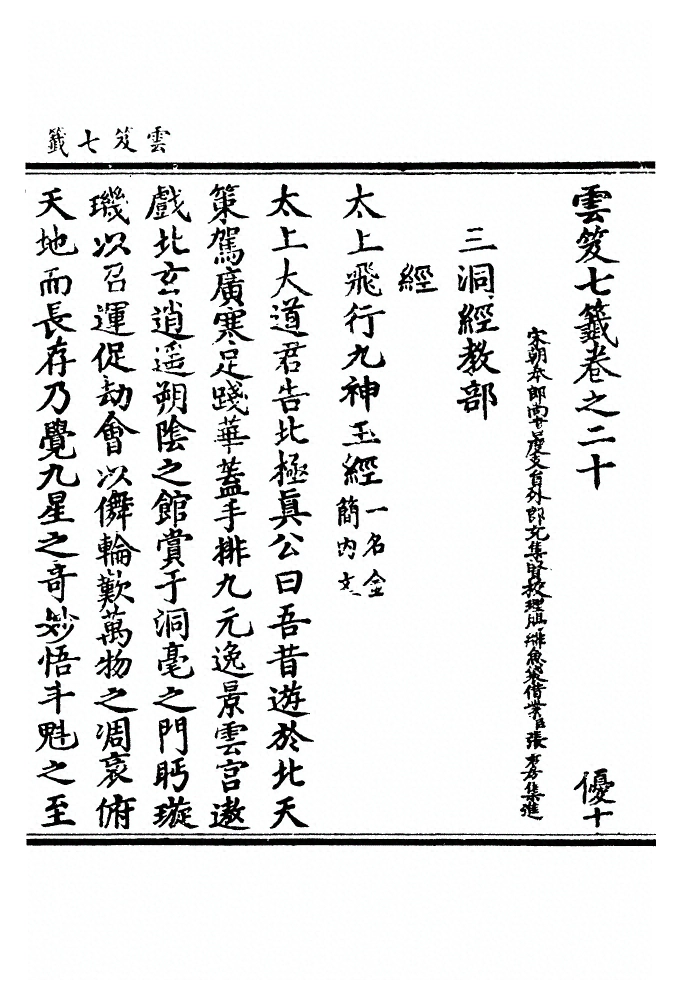 雲笈七籤
雲笈七籤卷之二十 優十
宋朝奉郎尚書度支員外郎充集賢校理賜緋魚袋借紫臣張君房集進
三洞經教部
經
太上飛行九神玉經一名金簡內文
太上大道君告北極真公曰吾昔遊於北天
策駕廣寒足踐華蓋手排九元逸景雲宮遨
戲北玄逍遥朔陰之館賞于洞毫之門眄璇
璣以召運促劫會以儛輪歎萬物之凋衰俯
天地而長存乃覺九星之奇妙悟斗魁之至